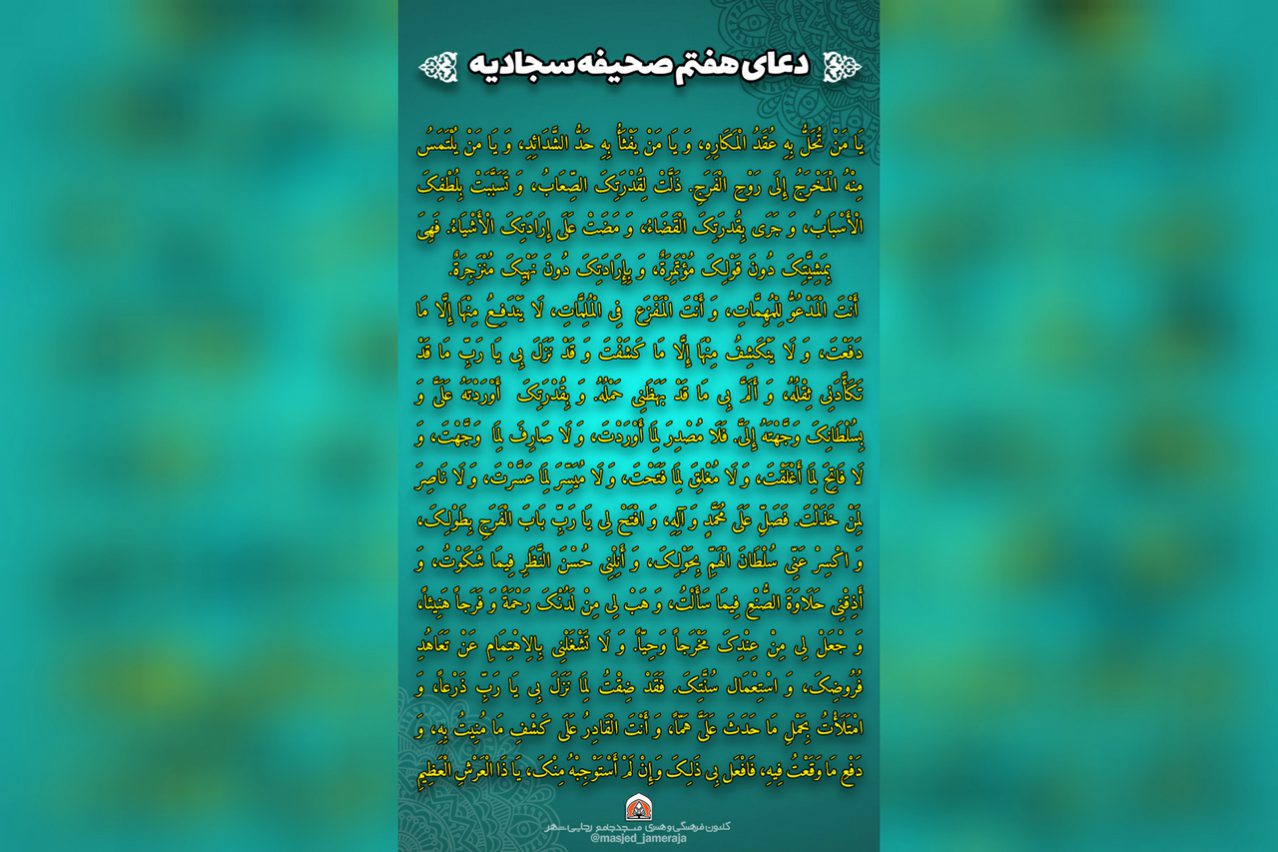 دعای هفتم صحیفه سجادیه
یَا مَنْ تُحَلُّ بِهِ عُقَدُ الْمَکَارِهِ، وَ یَا مَنْ یَفْثَأُ بِهِ حَدُّ الشَّدَائِدِ، وَ یَا مَنْ یُلْتَمَسُ
مِنْهُ الْمَخْرَجُ إِلَی رَوْحِ الْفَرَجِ. ذَلَّتْ لِقُدْرَتِکَ الصِّعَابُ، وَ تَسَبَّبَتْ بِلُطْفِکَ
الْأَسْبَابُ، وَ جَرَی بِقُدرَتِکَ الْقَضَاءُ، وَ مَضَتْ عَلَی إِرَادَتِکَ الْأَشْیَاءُ. فَهِیَ
بِمَشِیَّتِکَ دُونَ قَوْلِکَ مُؤْتَمِرَةٌ، وَ بِإِرَادَتِکَ دُونَ نَهْیِکَ مُنْزَجِرَةٌ.
أَنْتَ الْمَدْعُوُّ لِلْمُهِمَّاتِ، وَ أَنْتَ الْمَفْزَعُ فِی الْمُلِمَّاتِ، لَا یَنْدَفِعُ مِنْهَا إِلَّا مَا
دَفَعْتَ، وَ لَا یَنْکَشِفُ مِنْهَا إِلَّا مَا کَشَفْتَ وَ قَدْ نَزَلَ بِی یَا رَبِّ مَا قَدْ
تَکَأَّدَنِی ثِقْلُهُ، وَ أَلَمَّ بِی مَا قَدْ بَهَظَنِی حَمْلُهُ. وَ بِقُدْرَتِکَ أَوْرَدْتَهُ عَلَیَّ وَ
بِسُلْطَانِکَ وَجَّهْتَهُ إِلَیَّ. فَلَا مُصْدِرَ لِمَا أَوْرَدْتَ، وَ لَا صَارِفَ لِمَا وَجَّهْتَ، وَ
لَا فَاتِحَ لِمَا أَغْلَقْتَ، وَ لَا مُغْلِقَ لِمَا فَتَحْتَ، وَ لَا مُیَسِّرَ لِمَا عَسَّرْتَ، وَ لَا نَاصِرَ
لِمَنْ خَذَلْتَ. فَصَلِّ عَلَی مُحَمَّدٍ وَ آلِهِ، وَ افْتَحْ لِی یَا رَبِّ بَابَ الْفَرَجِ بِطَوْلِکَ،
وَ اکْسِرْ عَنِّی سُلْطَانَ الْهَمِّ بِحَوْلِکَ، وَ أَنِلْنِی حُسْنَ النَّظَرِ فِیمَا شَکَوْتُ، وَ
أَذِقْنِی حَلَاوَةَ الصُّنْعِ فِیمَا سَأَلْتُ، وَ هَبْ لِی مِنْ لَدُنْکَ رَحْمَةً وَ فَرَجاً هَنِیئاً،
وَ جْعَلْ لِی مِنْ عِنْدِکَ مَخْرَجاً وَحِیّاً. وَ لَا تَشْغَلْنِی بِالِاهْتِمَامِ عَنْ تَعَاهُدِ
فُرُوضِکَ، وَ اسْتِعْمَالِ سُنَّتِکَ. فَقَدْ ضِقْتُ لِمَا نَزَلَ بِی یَا رَبِّ ذَرْعاً، وَ
امْتَلَأْتُ بِحَمْلِ مَا حَدَثَ عَلَیَّ هَمّاً، وَ أَنْتَ الْقَادِرُ عَلَی کَشْفِ مَا مُنِیتُ بِهِ، وَ
دَفْعِ مَا وَقَعْتُ فِیهِ، فَافْعَل بِی ذَلِکَ وَإِنْ لَمْ أَسْتَوْجِبْهُ مِنْکَ، یَا ذَا الْعَرْشِ الْعَظِیمِ
کانون فرهنگی و هنری مسجدجامع رجایی شهر
@masjed_jameraja